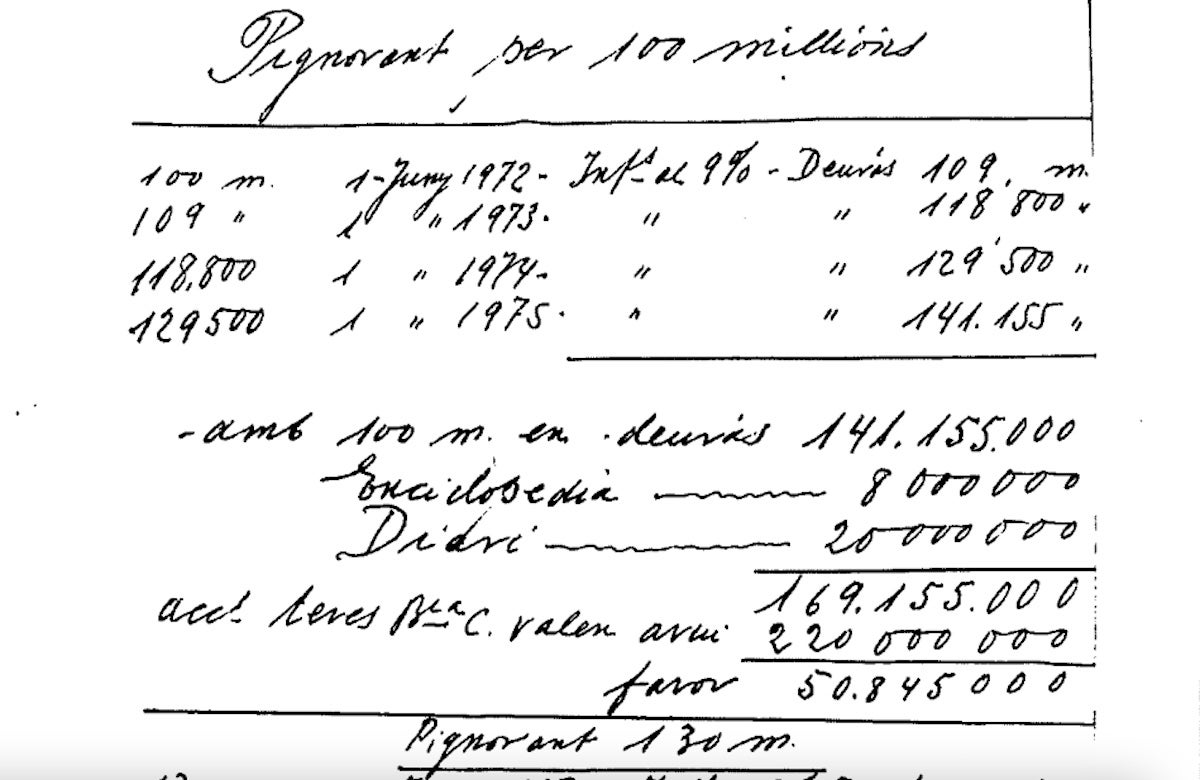 Pignorant per 100 millións
100 m. 1-Juny 1972- Int.s al 9% - Deurás 109. m.
109 " 1 " 1973. " " 118'800 "
118,800 1 " 1974- " " 129'500 "
129500 1 " 1975. " " 141.155 "
-amb 100 m. en deurás 141.155.000
Enciclopedia 8 000 000
Diari 20 000 000
169.155.000
acc.s teves B.ca C. valen avui 220 000 000
favor 50.845 000
Pignorant 130 m.